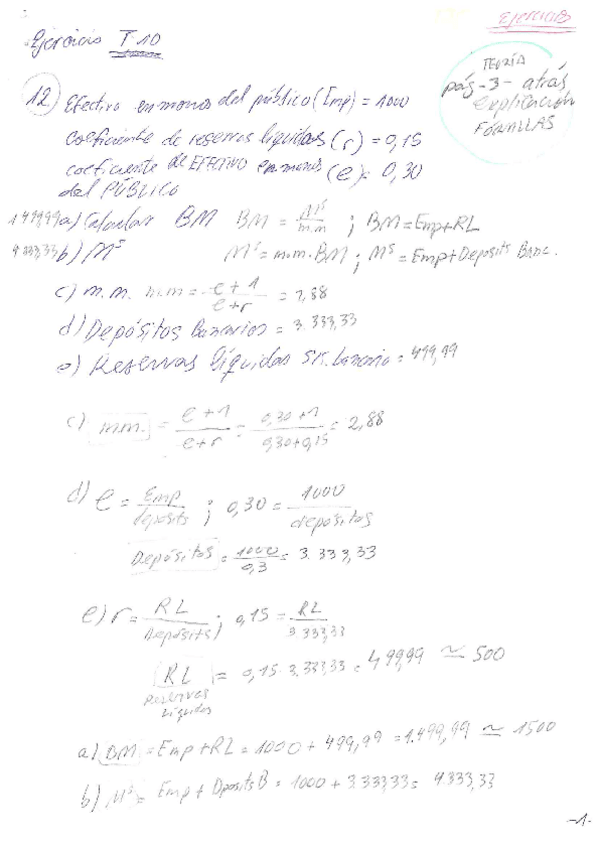 Ejercicios
Ejercicio T 10
TEORÍA
pág-3- atrás
explicación
FÓRMULAS
12) Efectivo en manos del público (Emp) = 1000
coeficiente de reservas líquidas (r) = 0,15
coeficiente de EFECTIVO en manos (e) = 0,30
del PÚBLICO
1499,99 a) Calcular BM BM = M^s / m.m ; BM = Emp + RL
4333,33 b) M^s M^s = m.m. BM ; M^s = Emp + Deposits Banc.
c) m.m. m.m = e + 1 / e + r = 2,88
d) Depósitos Bancarios = 3.333,33
e) Reservas líquidas sis. bancario = 499,99
c) m.m. = e + 1 / e + r = 0,30 + 1 / 0,30 + 0,15 = 2,88
d) e = Emp / deposits ; 0,30 = 1000 / depósitos
Depósitos = 1000 / 0,3 = 3.333,33
e) r = RL / Deposits ; 0,15 = RL / 3.333,33
RL = 0,15 · 3.333,33 = 499,99 ≃ 500
Reservas
Líquidas
a) BM = Emp + RL = 1000 + 499,99 = 1.499,99 ≃ 1500
b) M^s = Emp + Dposits B = 1000 + 3.333,33 = 4333,33
-1-